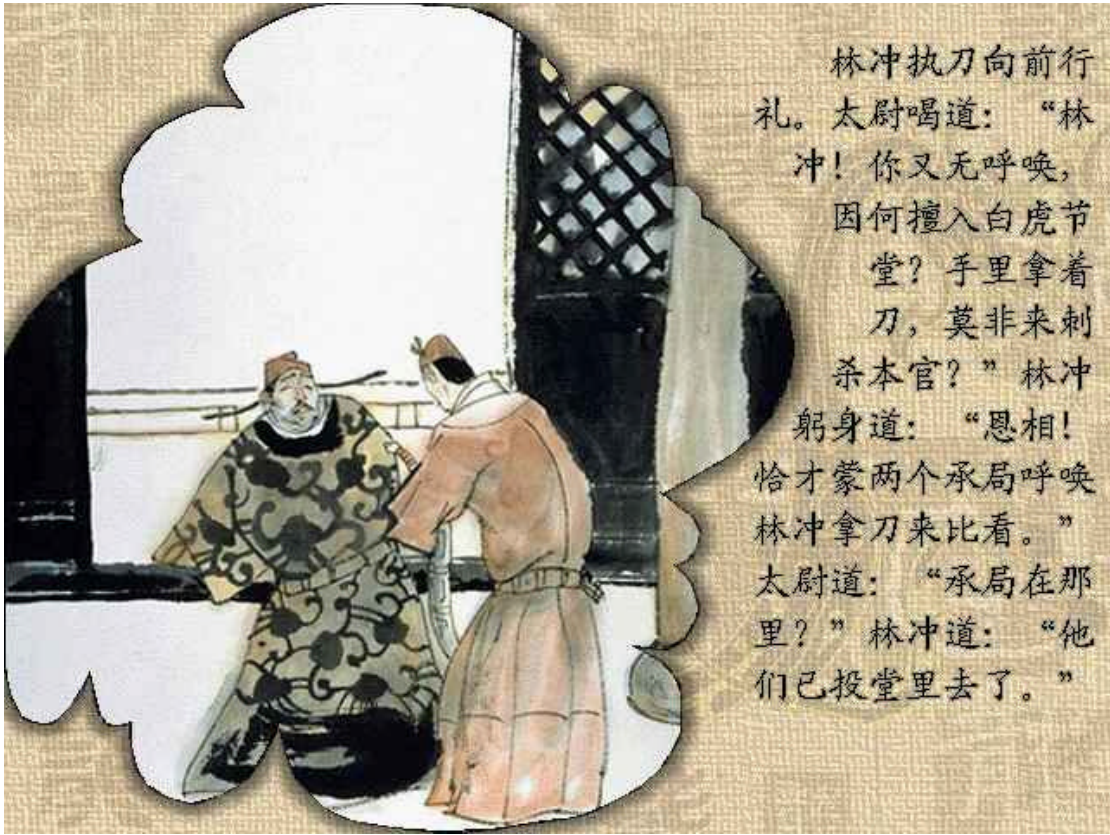 林冲执刀向前行
礼。太尉喝道：“林
冲！你又无呼唤，
因何擅入白虎节
堂？手里拿着
刀，莫非来刺
杀本官？”林冲
躬身道：“恩相！
恰才蒙两个承局呼唤
林冲拿刀来比看。”
太尉道：“承局在那
里？”林冲道：“他
们已投堂里去了。”